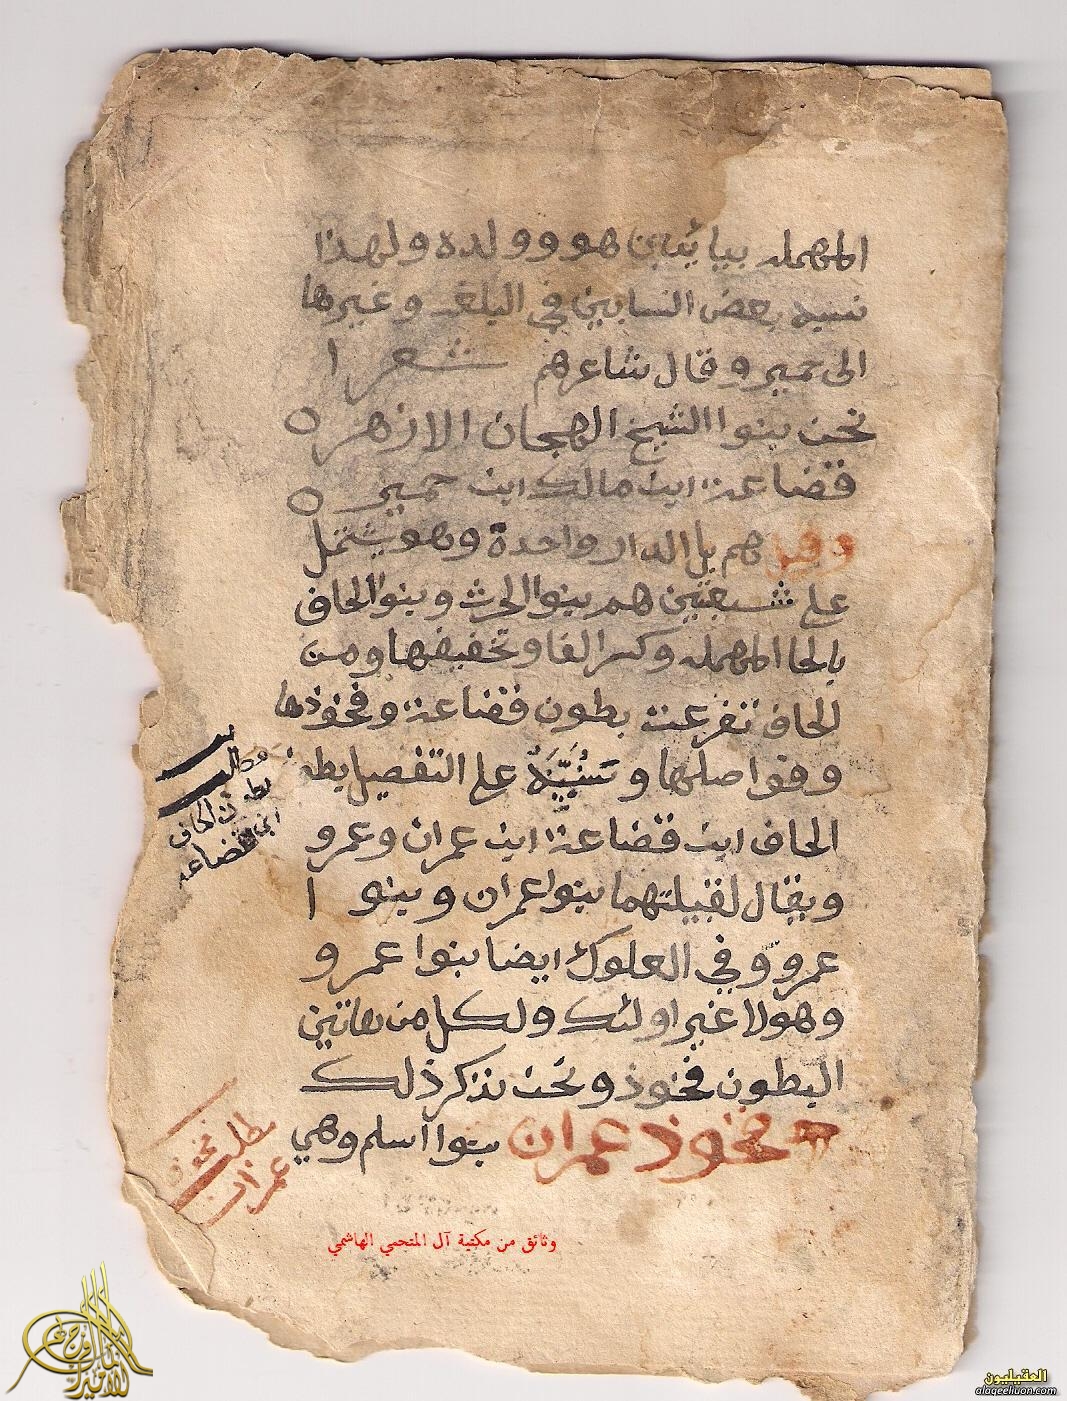 المهمله بيائين هو وولده ولهذا
نسبه بعض النسابين في اليلغه وغيرها
الى حمير وقال شاعرهم شعرا
نحن بنوا الشيخ الهجان الازهر
قضاعة ابن مالك ابن حمير
وقيل هم بل الدار واحدة وهو يشتمل
على شعبتين هم بنوا الحرث وبنوا الحاف
بالحا المهمله وكسر الفا وتخفيفها ومن
الحاف تفرعت بطون قضاعة وفخوذها
وفواصلها و على التفصيل بطن
الحاف ابن قضاعة ابن عمران وعمرو
ويقال لقبيلتهما بنوا عمران وبنوا
عمرو وفي العلوك ايضا بنوا عمرو
وهولا غير اولئك ولكل من هاتين
البطون فخوذ ونحن نذكر ذلك
فخوذ عمران بنوا اسلم وهي
مطلب
بطون الحاف
ابن قضاعه
مطلب فخوذ
عمران
وثائق من مكتبة آل المتحمي الهاشمي
العقيليون
alaqeeliuon.com